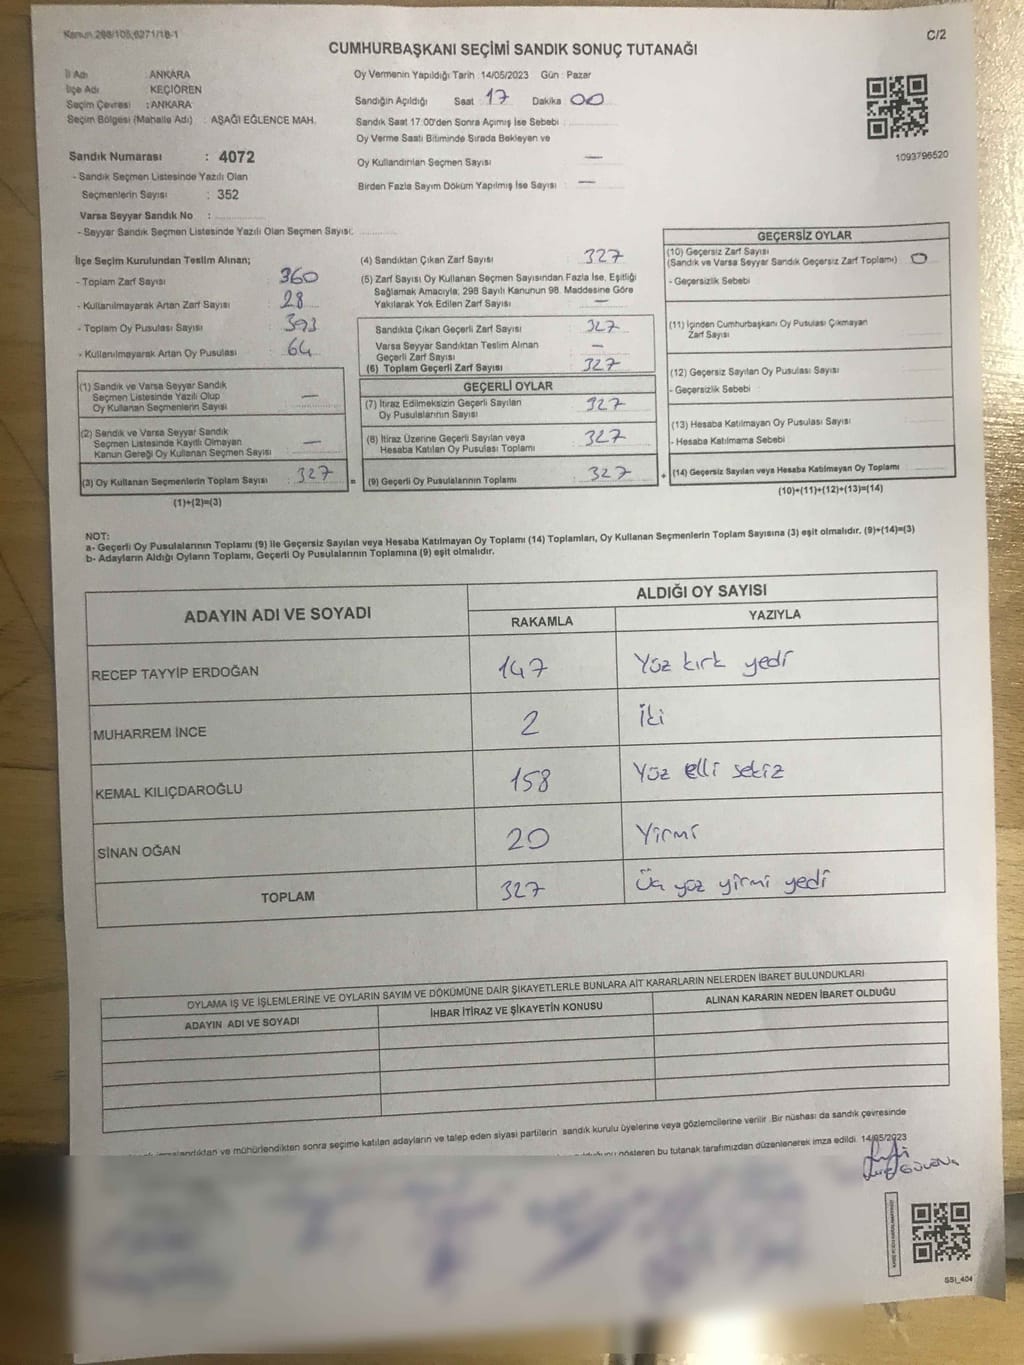 Kanun 298/105,6271/18-1
C/2
CUMHURBAŞKANI SEÇİMİ SANDIK SONUÇ TUTANAĞI
İl Adı : ANKARA
İlçe Adı KEÇİÖREN
Seçim Çevresi : ANKARA
Seçim Bölgesi (Mahalle Adı) : AŞAĞI EĞLENCE MAH.
Sandık Numarası : 4072
- Sandık Seçmen Listesinde Yazılı Olan
Seçmenlerin Sayısı : 352
Varsa Seyyar Sandık No :
- Seyyar Sandık Seçmen Listesinde Yazılı Olan Seçmen Sayısı:
Oy Vermenin Yapıldığı Tarih : 14/05/2023 Gün : Pazar
Sandığın Açıldığı Saat 17 Dakika 00
Sandık Saat 17:00'den Sonra Açımış İse Sebebi :
Oy Verme Saati Bitiminde Sırada Bekleyen ve
Oy Kullandırılan Seçmen Sayısı —
Birden Fazla Sayım Döküm Yapılmış İse Sayısı : —
1093796520
İlçe Seçim Kurulundan Teslim Alınan;
- Toplam Zarf Sayısı : 360
- Kullanılmayarak Artan Zarf Sayısı : 28
- Toplam Oy Pusulası Sayısı : 393
- Kullanılmayarak Artan Oy Pusulası : 64
(1) Sandık ve Varsa Seyyar Sandık
Seçmen Listesinde Yazılı Olup
Oy Kullanan Seçmenlerin Sayısı —
(2) Sandık ve Varsa Seyyar Sandık
Seçmen Listesinde Kayıtlı Olmayan
Kanun Gereği Oy Kullanan Seçmen Sayısı : —
(3) Oy Kullanan Seçmenlerin Toplam Sayısı : 327
(1)+(2)=(3)
(4) Sandıktan Çıkan Zarf Sayısı : 327
(5) Zarf Sayısı Oy Kullanan Seçmen Sayısından Fazla İse, Eşitliği
Sağlamak Amacıyla; 298 Sayılı Kanunun 98. Maddesine Göre
Yakılarak Yok Edilen Zarf Sayısı : —
Sandıkta Çıkan Geçerli Zarf Sayısı : 327
Varsa Seyyar Sandıktan Teslim Alınan
Geçerli Zarf Sayısı : —
(6) Toplam Geçerli Zarf Sayısı : 327
GEÇERLİ OYLAR
(7) İtiraz Edilmeksizin Geçerli Sayılan
Oy Pusulalarının Sayısı : 327
(8) İtiraz Üzerine Geçerli Sayılan veya
Hesaba Katılan Oy Pusulası Toplamı : 327
= (9) Geçerli Oy Pusulalarının Toplamı : 327
GEÇERSİZ OYLAR
(10) Geçersiz Zarf Sayısı
(Sandık ve Varsa Seyyar Sandık Geçersiz Zarf Toplamı) : 0
- Geçersizlik Sebebi
(11) İçinden Cumhurbaşkanı Oy Pusulası Çıkmayan
Zarf Sayısı
(12) Geçersiz Sayılan Oy Pusulası Sayısı :
- Geçersizlik Sebebi :
(13) Hesaba Katılmayan Oy Pusulası Sayısı
- Hesaba Katılmama Sebebi
+ (14) Geçersiz Sayılan veya Hesaba Katılmayan Oy Toplamı
(10)+(11)+(12)+(13)=(14)
NOT:
a- Geçerli Oy Pusulalarının Toplamı (9) ile Geçersiz Sayılan veya Hesaba Katılmayan Oy Toplamı (14) Toplamları, Oy Kullanan Seçmenlerin Toplam Sayısına (3) eşit olmalıdır. (9)+(14)=(3)
b- Adayların Aldığı Oyların Toplamı, Geçerli Oy Pusulalarının Toplamına (9) eşit olmalıdır.
ADAYIN ADI VE SOYADI
ALDIĞI OY SAYISI
RAKAMLA YAZIYLA
RECEP TAYYİP ERDOĞAN 147 Yüz kırk yedi
MUHARREM İNCE 2 İki
KEMAL KILIÇDAROĞLU 158 Yüz elli sekiz
SİNAN OĞAN 20 Yirmi
TOPLAM 327 Üç yüz yirmi yedi
OYLAMA İŞ VE İŞLEMLERİNE VE OYLARIN SAYIM VE DÖKÜMÜNE DAİR ŞİKAYETLERLE BUNLARA AİT KARARLARIN NELERDEN İBARET BULUNDUKLARI
ADAYIN ADI VE SOYADI İHBAR İTİRAZ VE ŞİKAYETİN KONUSU ALINAN KARARIN NEDEN İBARET OLDUĞU
ve mühürlendikten sonra seçime katılan adayların ve talep eden siyasi partilerin sandık kurulu üyelerine veya gözlemcilerine verilir. Bir nüshası da sandık çevresinde
gösteren bu tutanak tarafımızdan düzenlenerek imza edildi. 14/05/2023
SSI_404